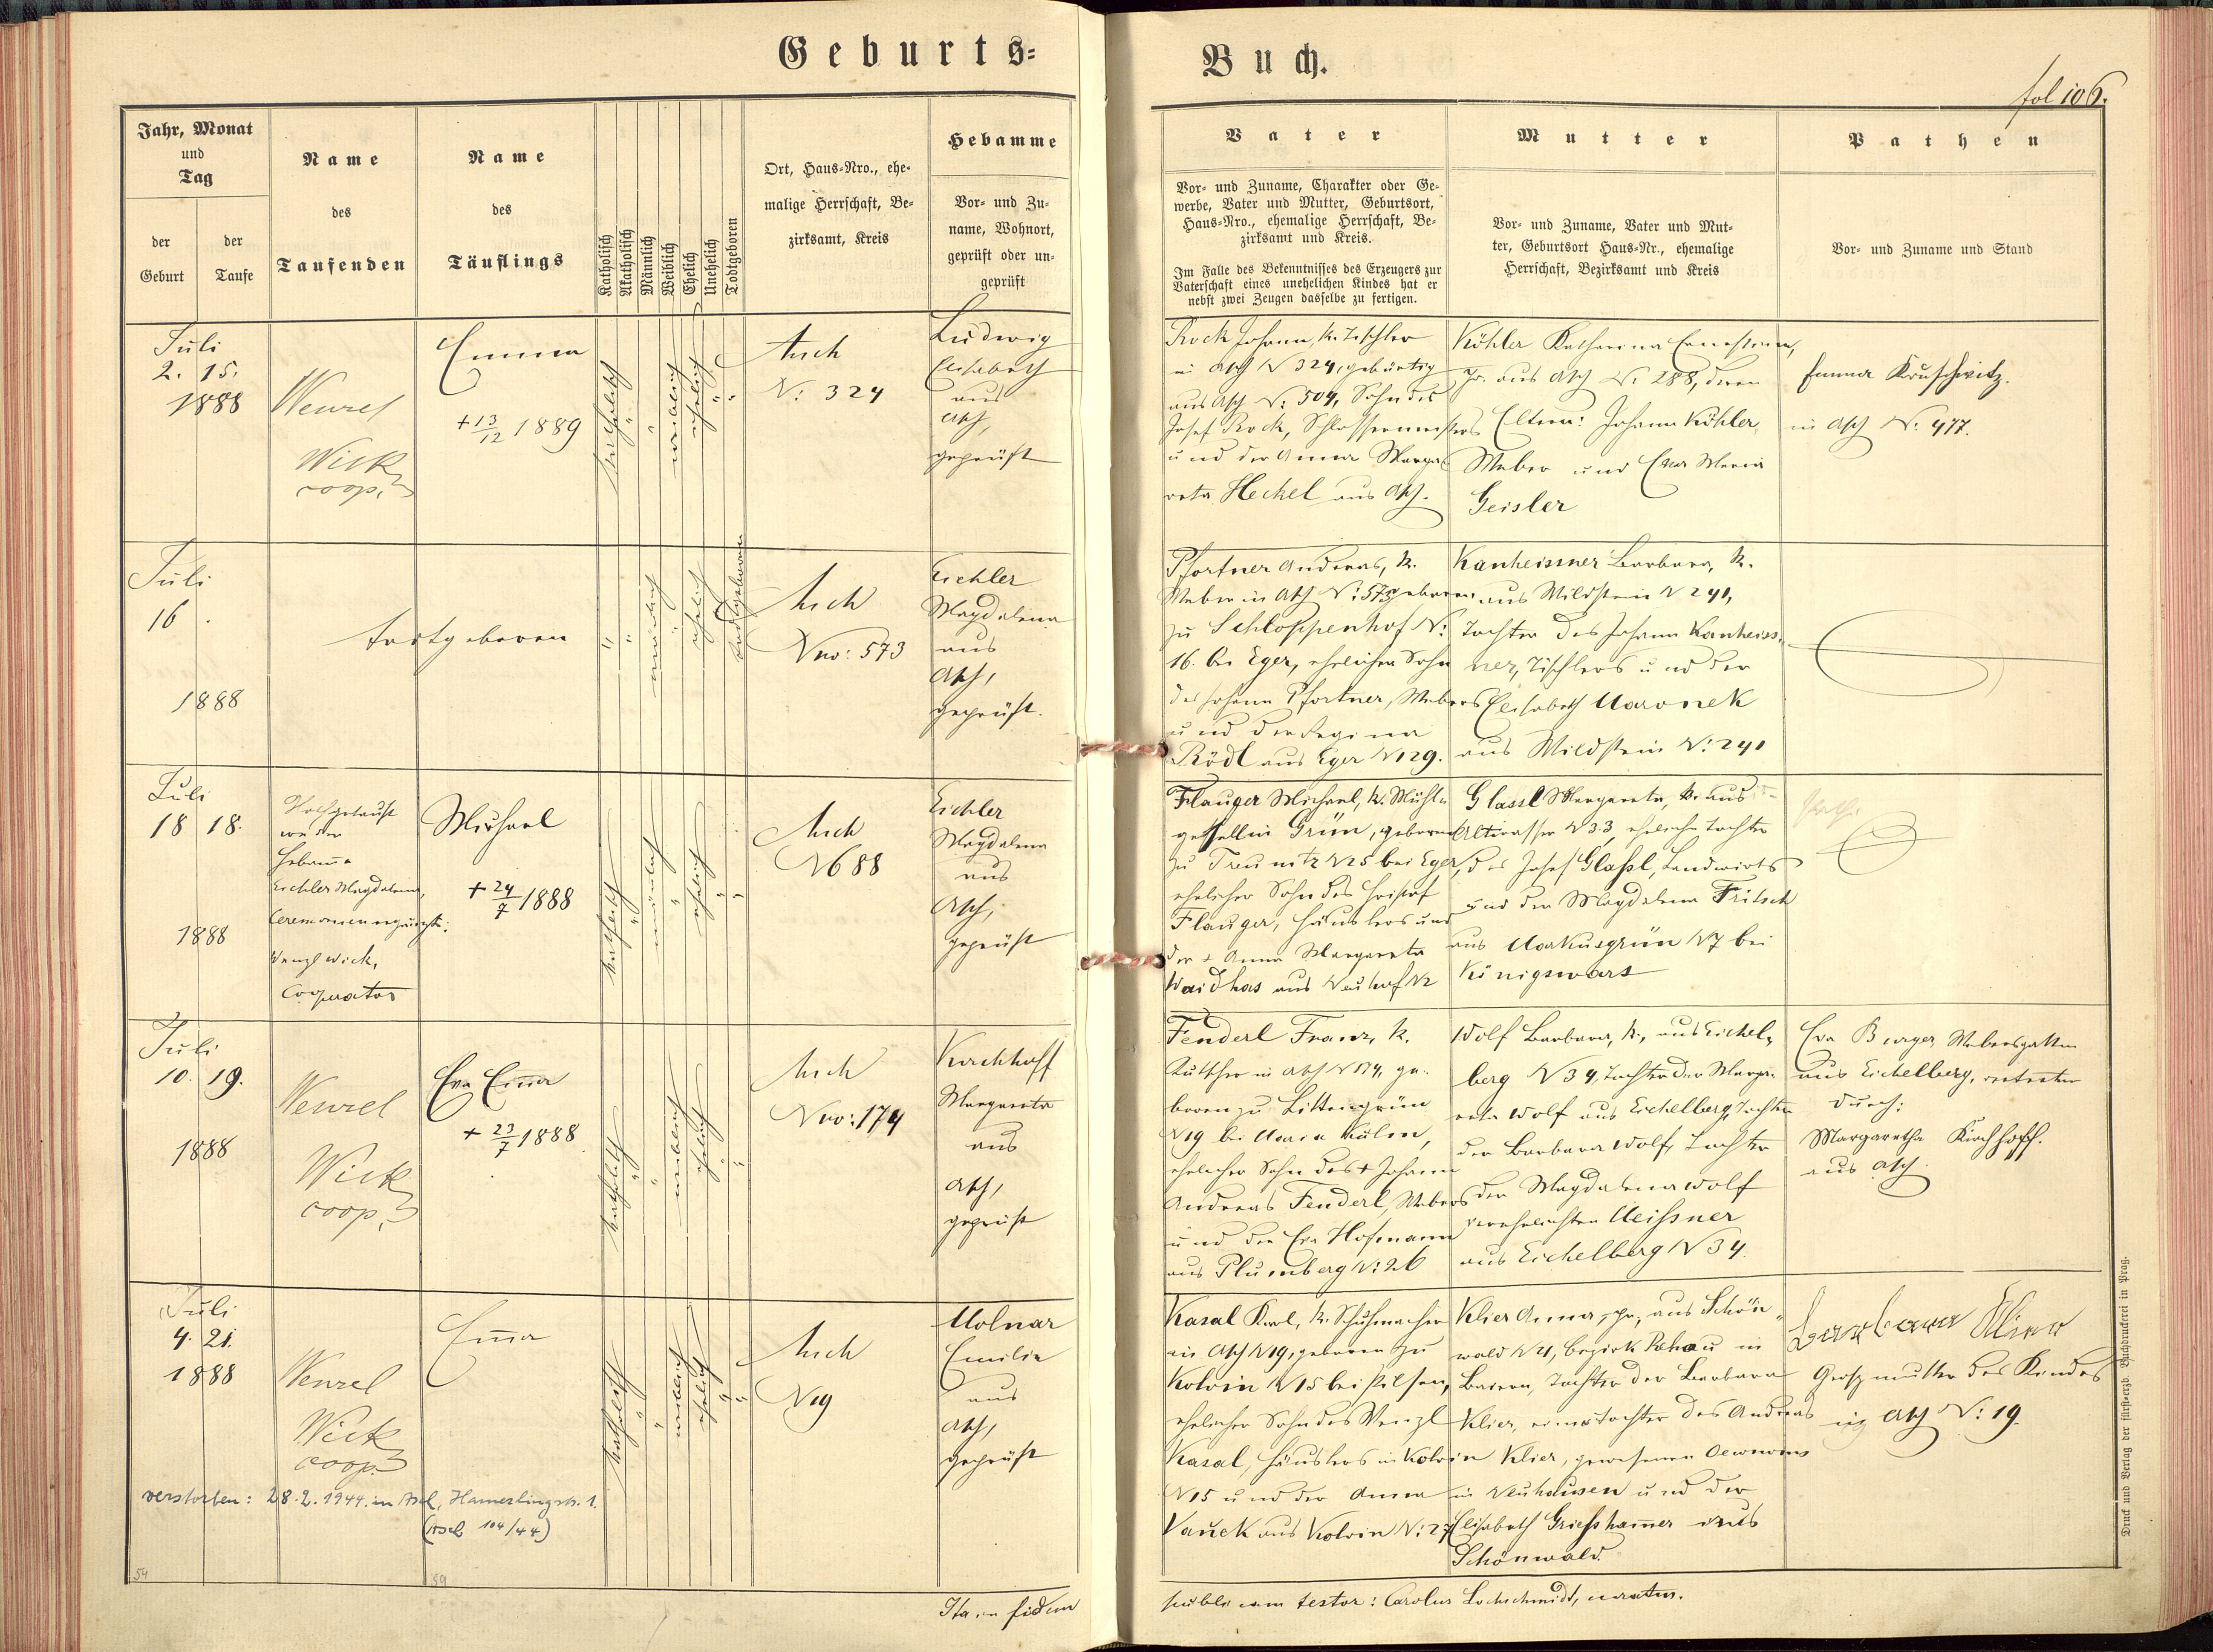 Geburts-
Buch.
fol 106.
Jahr, Monat
und
Tag
der
Geburt
der
Taufe
Name
des
Taufenden
Name
des
Täuflings
Katholisch
Akatholisch
Männlich
Weiblich
Ehelich
Unehelich
Todtgeboren
Ort, Haus-Nro., ehe-
malige Herrschaft, Be-
zirksamt, Kreis
Hebamme
Vor- und Zu-
name, Wohnort,
geprüft oder un-
geprüft
Vater
Vor- und Zuname, Charakter oder Ge-
werbe, Vater und Mutter, Geburtsort,
Haus-Nro., ehemalige Herrschaft, Be-
zirksamt und Kreis.
Im Falle des Bekenntnisses des Erzeugers zur
Vaterschaft eines unehelichen Kindes hat er
nebst zwei Zeugen dasselbe zu fertigen.
Mutter
Vor- und Zuname, Vater und Mut-
ter, Geburtsort Haus-Nr., ehemalige
Herrschaft, Bezirksamt und Kreis
Pathen
Vor- und Zuname und Stand
Juli
2. 15.
1888
Wenzel
Wick
coop.
Emma
+ 13/12 1889
katholisch
weiblich
ehelich
Asch
N: 324
Ludwig
Elisabeth
aus
Asch,
geprüft
Rock Johann, k. Tischler
in Asch N 324, gebürtig
aus Asch N: 504, Sohn des
Josef Rock, Schlossermeisters
und der Anna Marga-
reta Heckel aus Asch.
Köhler Katharina Ernestine,
pr. aus Asch N. 288, deren
Eltern: Johann Köhler,
Weber und Eva Maria
Geisler
Emma Kruschwitz.
in Asch N. 477.
Juli
16.
1888
todtgeboren
männlich
ehelich
todtgeboren
Asch
Nro: 573
Eichler
Magdalena
aus
Asch,
geprüft.
Pfortner Andreas, k.
Weber in Asch N: 573 geboren
zu Schloppenhof N:
16. bei Eger, ehelicher Sohn
des Johann Pfortner, Webers
und der Regina
Rödl aus Eger N 29.
Kanheissner Barbara, k.
aus Wildstein N 241,
Tochter des Johann Kanheiss-
ner, Tischlers und der
Elisabeth Maronek
aus Wildstein N: 241
Juli
18 18.
1888
Nothgetauft
von der
Hebamme
Eichler Magdalena,
Ceremonien ergänzt:
Wenzl Wick,
Cooperator
Michael
+ 24/7 1888
katholisch
männlich
ehelich
Asch
N 688
Eichler
Magdalena
aus
Asch,
geprüft
Flauger Michael, k. Mühl-
gesell in Grün, geboren
zu Treunitz N 25 bei Eger,
ehelicher Sohn des Christof
Flauger, Häuslers und
der + Anna Margareta
Waidhas aus Neuhof N 2
Glassl Margareta, k. aus
Altwasser N 33, eheliche Tochter
des Josef Glaßl, Landwirts
und der Magdalena Fritsch
aus Markusgrün N 7 bei
Königswart
Juli
10. 19.
1888
Wenzel
Wick
coop.
Eva Em̄a
+ 23/7 1888
katholisch
weiblich
ehelich
Asch
Nro: 174
Kirchhoff
Margareta
aus
Asch,
geprüft
Fenderl Franz, k.
Kutscher in Asch N 174, ge-
boren zu Littengrün
N 19 bei Maria Kulm,
ehelicher Sohn des + Johann
Andreas Fenderl, Webers
und der Eva Hofmann
aus Plumberg N: 26
Wolf Barbara, k., aus Eichel-
berg N 34, Tochter der Marga-
reta Wolf aus Eichelberg, Tochter
der Barbara Wolf, Tochter
der Magdalena Wolf
verehelichten Meißner
aus Eichelberg N 34.
Eva Burger, Webersgattin
aus Eichelberg, vertreten
durch:
Margaretha Kirchhoff.
aus Asch.
Juli
4. 21.
1888
Wenzel
Wick
coop.
Em̄a
katholisch
weiblich
ehelich
Asch
N 19
Molnar
Emilie
aus
Asch,
geprüft
verstorben: 28.2.1944. in Asch, Hamerlingstr. 1.
(Asch 104/44)
Kasal Karl, k. Schuhmacher
in Asch N 19, geboren zu
Kotvin N 15 bei Pilsen,
ehelicher Sohn des Wenzl
Kasal, Häuslers in Kotvin
N 15 und der Anna
Vanek aus Kotvin N: 27
Klier Anna, pr., aus Schön-
wald N 21, Bezirk Rehau in
Baiern, Tochter der Barbara
Klier, einer Tochter des Andreas
Klier, gewesenen Oeconoms
in Neuhausen und der
Elisabeth Grießham̄er aus
Schönwald.
Barbara Klier
Großmutter des Kindes
in Asch N: 19.
54
59
Ita in fidem
publicam testor: Carolus Lochschmidt, curatus.
Druck und Verlag der fürst-erzb. Buchdruckerei in Prag.